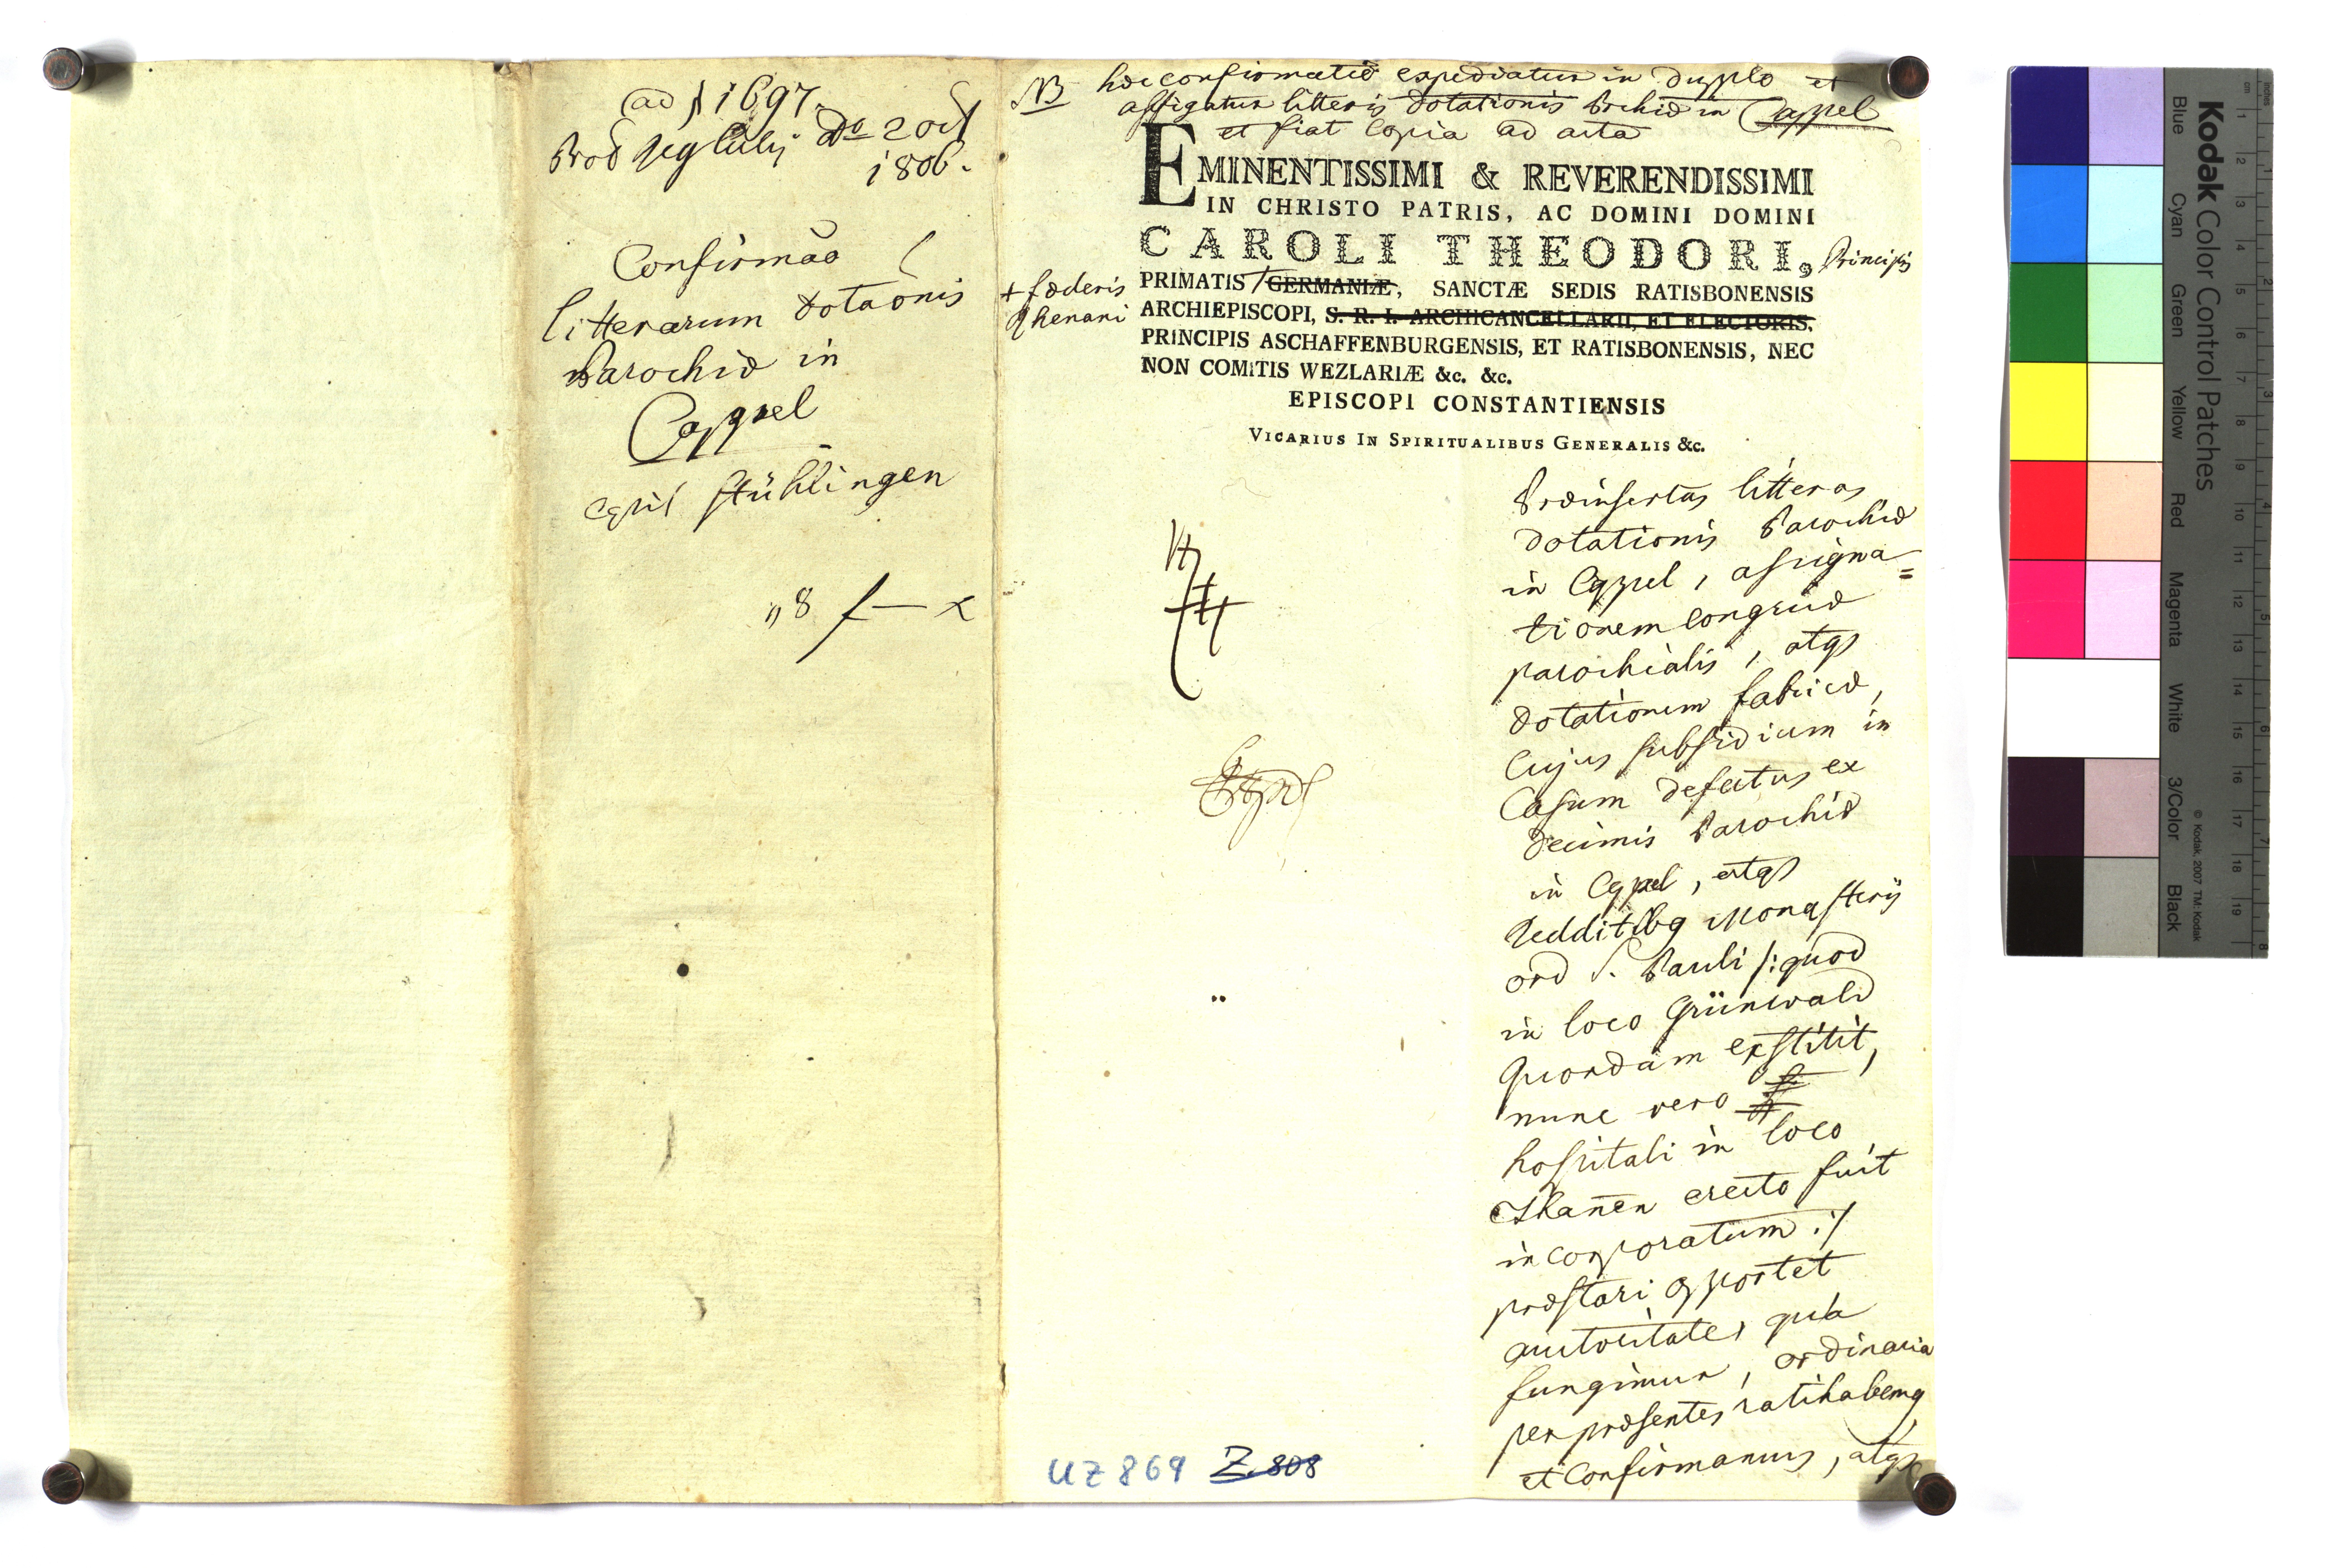 ad № 1697.
Prod Reg Celsj do 2 Oct
1806.
Confirmão
litterarum dotaõnis
Parochiæ in
Cappel
Capit Stühlingen
" 8 f — x
NB hæc confirmatio expediatur in duplo et
affigatur litteris dotationis Prchiæ in Cappel
et fiat copia ad acta
EMINENTISSIMI & REVERENDISSIMI
IN CHRISTO PATRIS, AC DOMINI DOMINI
CAROLI THEODORI, Principis
+ fœderis
Rhenani
PRIMATIS GERMANIÆ, SANCTÆ SEDIS RATISBONENSIS
ARCHIEPISCOPI, S. R. I. ARCHICANCELLARII, ET ELECTORIS,
PRINCIPIS ASCHAFFENBURGENSIS, ET RATISBONENSIS, NEC
NON COMITIS WEZLARIÆ &c. &c.
EPISCOPI CONSTANTIENSIS
VICARIUS IN SPIRITUALIBUS GENERALIS &c.
Præinsertas litteras
dotationis Parochiæ
in Cappel, assigna=
tionem congruæ
parochialis, atqs
dotationem fabricæ,
cujus subsidium in
casum defectus ex
decimis Parochiæ
in Cappel, atqs
redditibg Monasterii
ord S. Pauli /: quod
in loco Grünwald
quondam exstitit,
nunc vero
hospitali in loco
Thañen erecto fuit
incorporatum :/
præstari oportet
autoritate, qua
fungimur, ordinaria
per præsentes ratihabemg
et confirmamus, atqs
UZ 869 Z 808
Kodak Color Control Patches
Blue Cyan Green Yellow Red Magenta White 3/Color Black
© Kodak, 2007 TM: Kodak